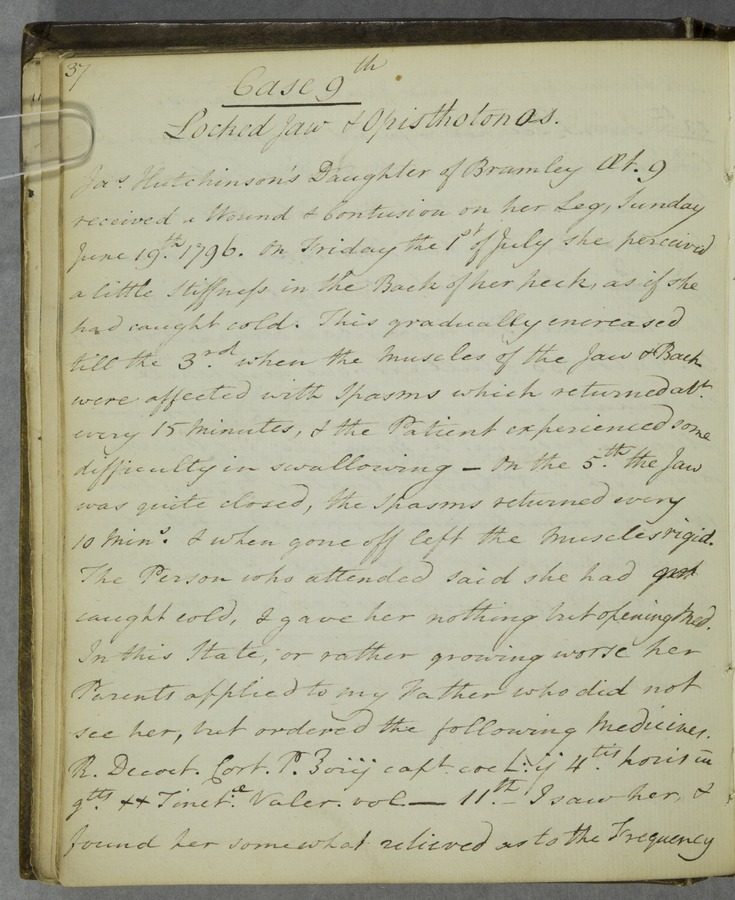 37
Case 9th
Locked Jaw & Opisthotonos.
Jas. Hutchinson's Daughter of Bramley Æt. 9
received a Wound & Contusion on her Leg, Sunday
June 19th. 1796. On Friday the 1st of July she perceived
a little stiffness in the Back of her neck, as if she
had caught cold. This gradually encreased
till the 3rd. when the Muscles of the Jaw & Back
were affected with Spasms which returned abt.
every 15 Minutes, & the Patient experienced some
difficulty in swallowing — On the 5th. the Jaw
was quite closed, the Spasms returned every
10 Mins. & when gone off left the Muscles rigid.
The Person who attended said she had
caught cold, & gave her nothing but opening Med.
In this State, or rather growing worse her
Parents applied to my Father who did not
see her, but ordered the following Medicines.
R. Decoct. Cort. P. capt. coch. ij 4tis horis
gtts xx Tinct. Valer. vol — 11th. I saw her, &
found her somewhat relieved as to the Frequency